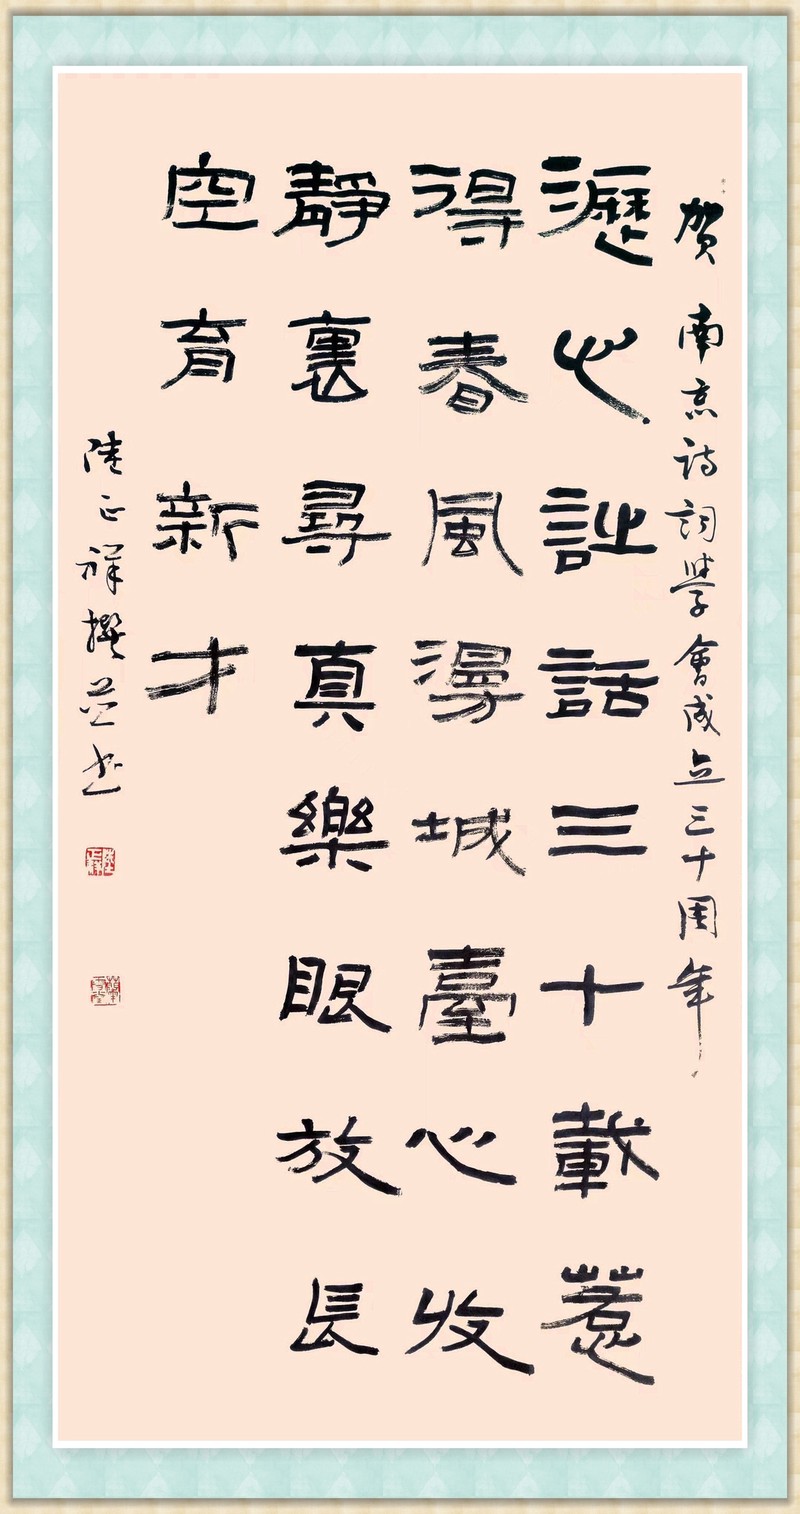 賀南京詩詞學會成立三十周年
瀝心詩話三十載惹
得春風漫城臺心收
靜裏尋真樂眼放長
空育新才
陸正祥撰并书